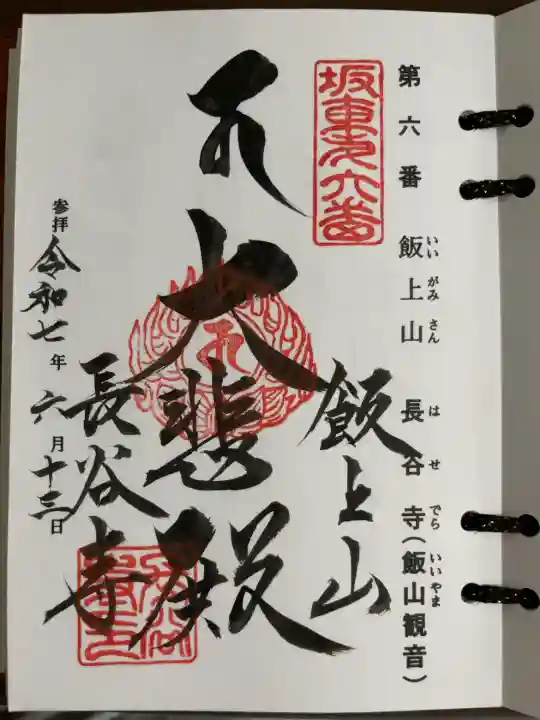 第六番 飯上山 長谷寺(飯山観音)
いいがみさん はせでら いいやま
坂東第六番
飯上山
大悲殿
長谷寺
参拝 令和七年 六月十三日